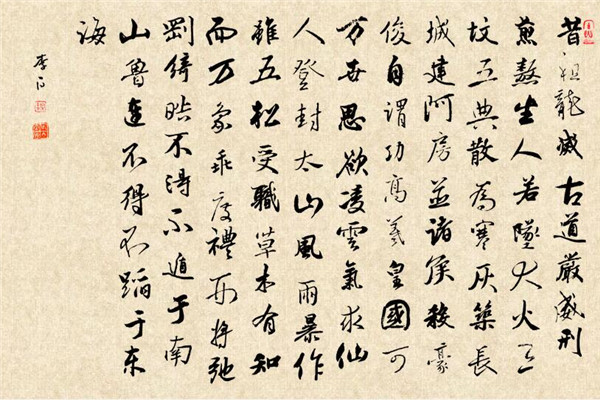 昔祖龍滅古道嚴威刑
煎熬生人若墜大火三
坟五典散為寒灰築長
城建阿房並諸侯殺豪
俊自謂功高羲皇國可
万世思欲凌雲氣求仙
人登封太山風雨暴作
雖五松受職草木有知
而万象乖度禮刑將弛
則綺皓不得不遁于南
山魯連不得不蹈于東
海
李白